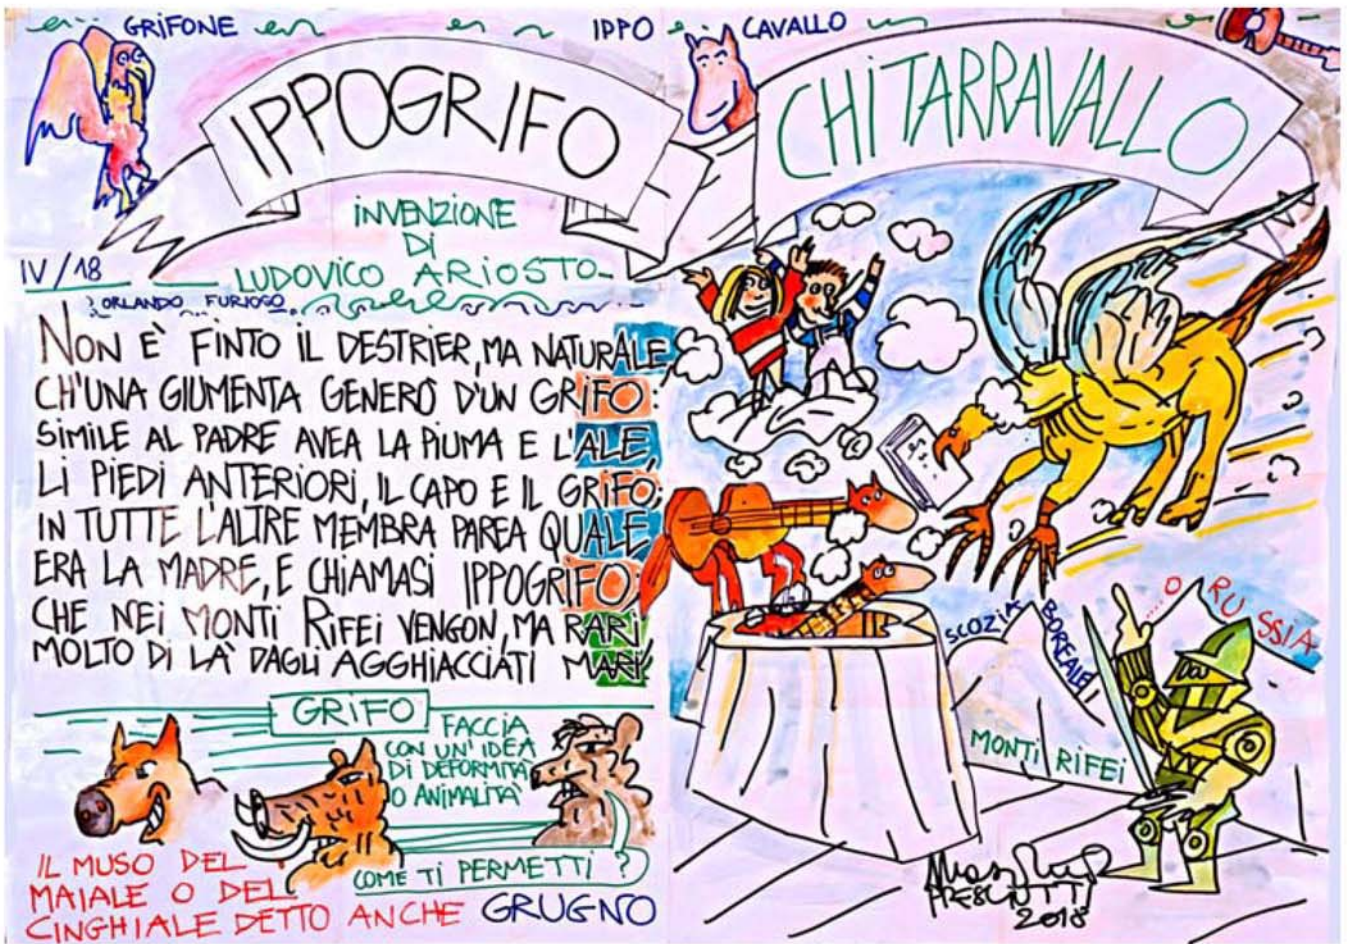 GRIFONE
IPPO
CAVALLO
IPPOGRIFO
CHiTARRAVALLO
iNVENZIONE
Di
LUDOVICO ARIOSTO
IV/18
ORLANDO FURIOSO
NON È FINTO iL DESTRIER, MA NATURALE,
CH'UNA GIUMENTA GENERÒ D'UN GRIFO:
SiMILE AL PADRE AVEA LA PiUMA E L'ALE,
Li PIEDI ANTERIORi, IL CAPO E IL GRIFO;
IN TUTTE L'ALTRE MEMBRA PAREA QUALE
ERA LA MADRE, E CHiAMASi IPPOGRIFO;
CHE NEi MONTi RiFEi VENGON, MA RARi,
MOLTO Di LÀ DAGLi AGGHIACCIATi MARi.
GRiFO
FACCiA
CON UN'IDEA
Di DEFORMITÀ
O ANIMALITÀ
COME Ti PERMETTi?
IL MUSO DEL
MAIALE O DEL
CINGHIALE DETTO ANCHE GRUGNO
SCOZIA
BOREALE
O RUSSIA
MONTi RIFEi
PRESCIUTTI
2018